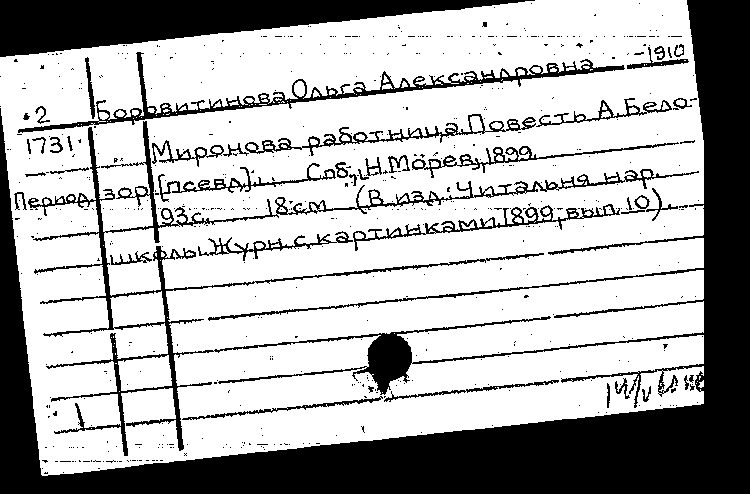 -1910
2 Боровитинова, Ольга Александровна
1731 Миронова работница. Повесть А. Бело-
Период. зор. [псевд]. Спб., Н. Морев, 1899.
93 с. 18 см (В изд.: Читальня нар.
школы. Журн. с картинками. 1899, вып. 10).